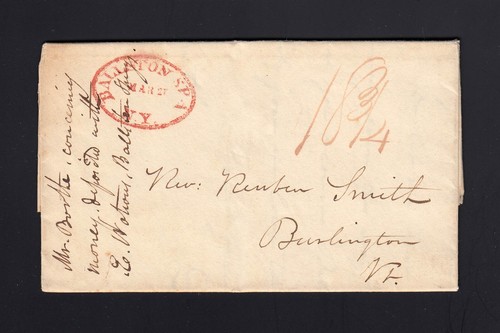 BALLSTON SPA
MAR 27
N.Y.
18 3/4
Mr. Boothe, concerning
money deposited with
E. Watrous, Ballston Spa.
Rev: Reuben Smith
Burlington
Vt.